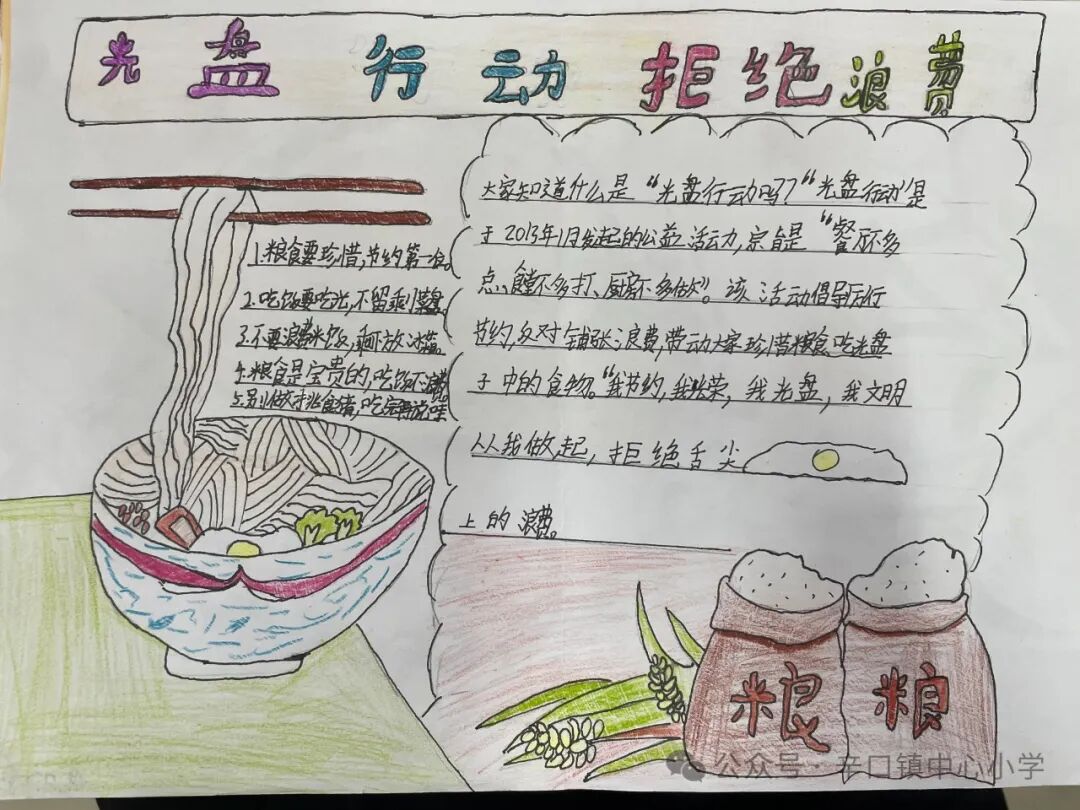 光盘行动拒绝浪费
1.粮食要珍惜,节约第一位。
2.吃饭要吃光,不留剩菜盘。
3.不要浪费米饭,剩下放冰箱。
4.粮食是宝贵的,吃饭不浪费。
5.别做挑食猪,吃完再说哇
大家知道什么是“光盘行动吗?”“光盘行动”是
于2013年1月发起的公益活动,宗旨是“餐厅不多
点、食堂不多打、厨房不多做”。该活动倡导厉行
节约,反对铺张浪费,带动大家珍惜粮食,吃光盘
子中的食物。“我节约,我光荣,我光盘,我文明
从我做起,拒绝舌尖
上的浪费。
粮 粮
公众号·辛口镇中心小学